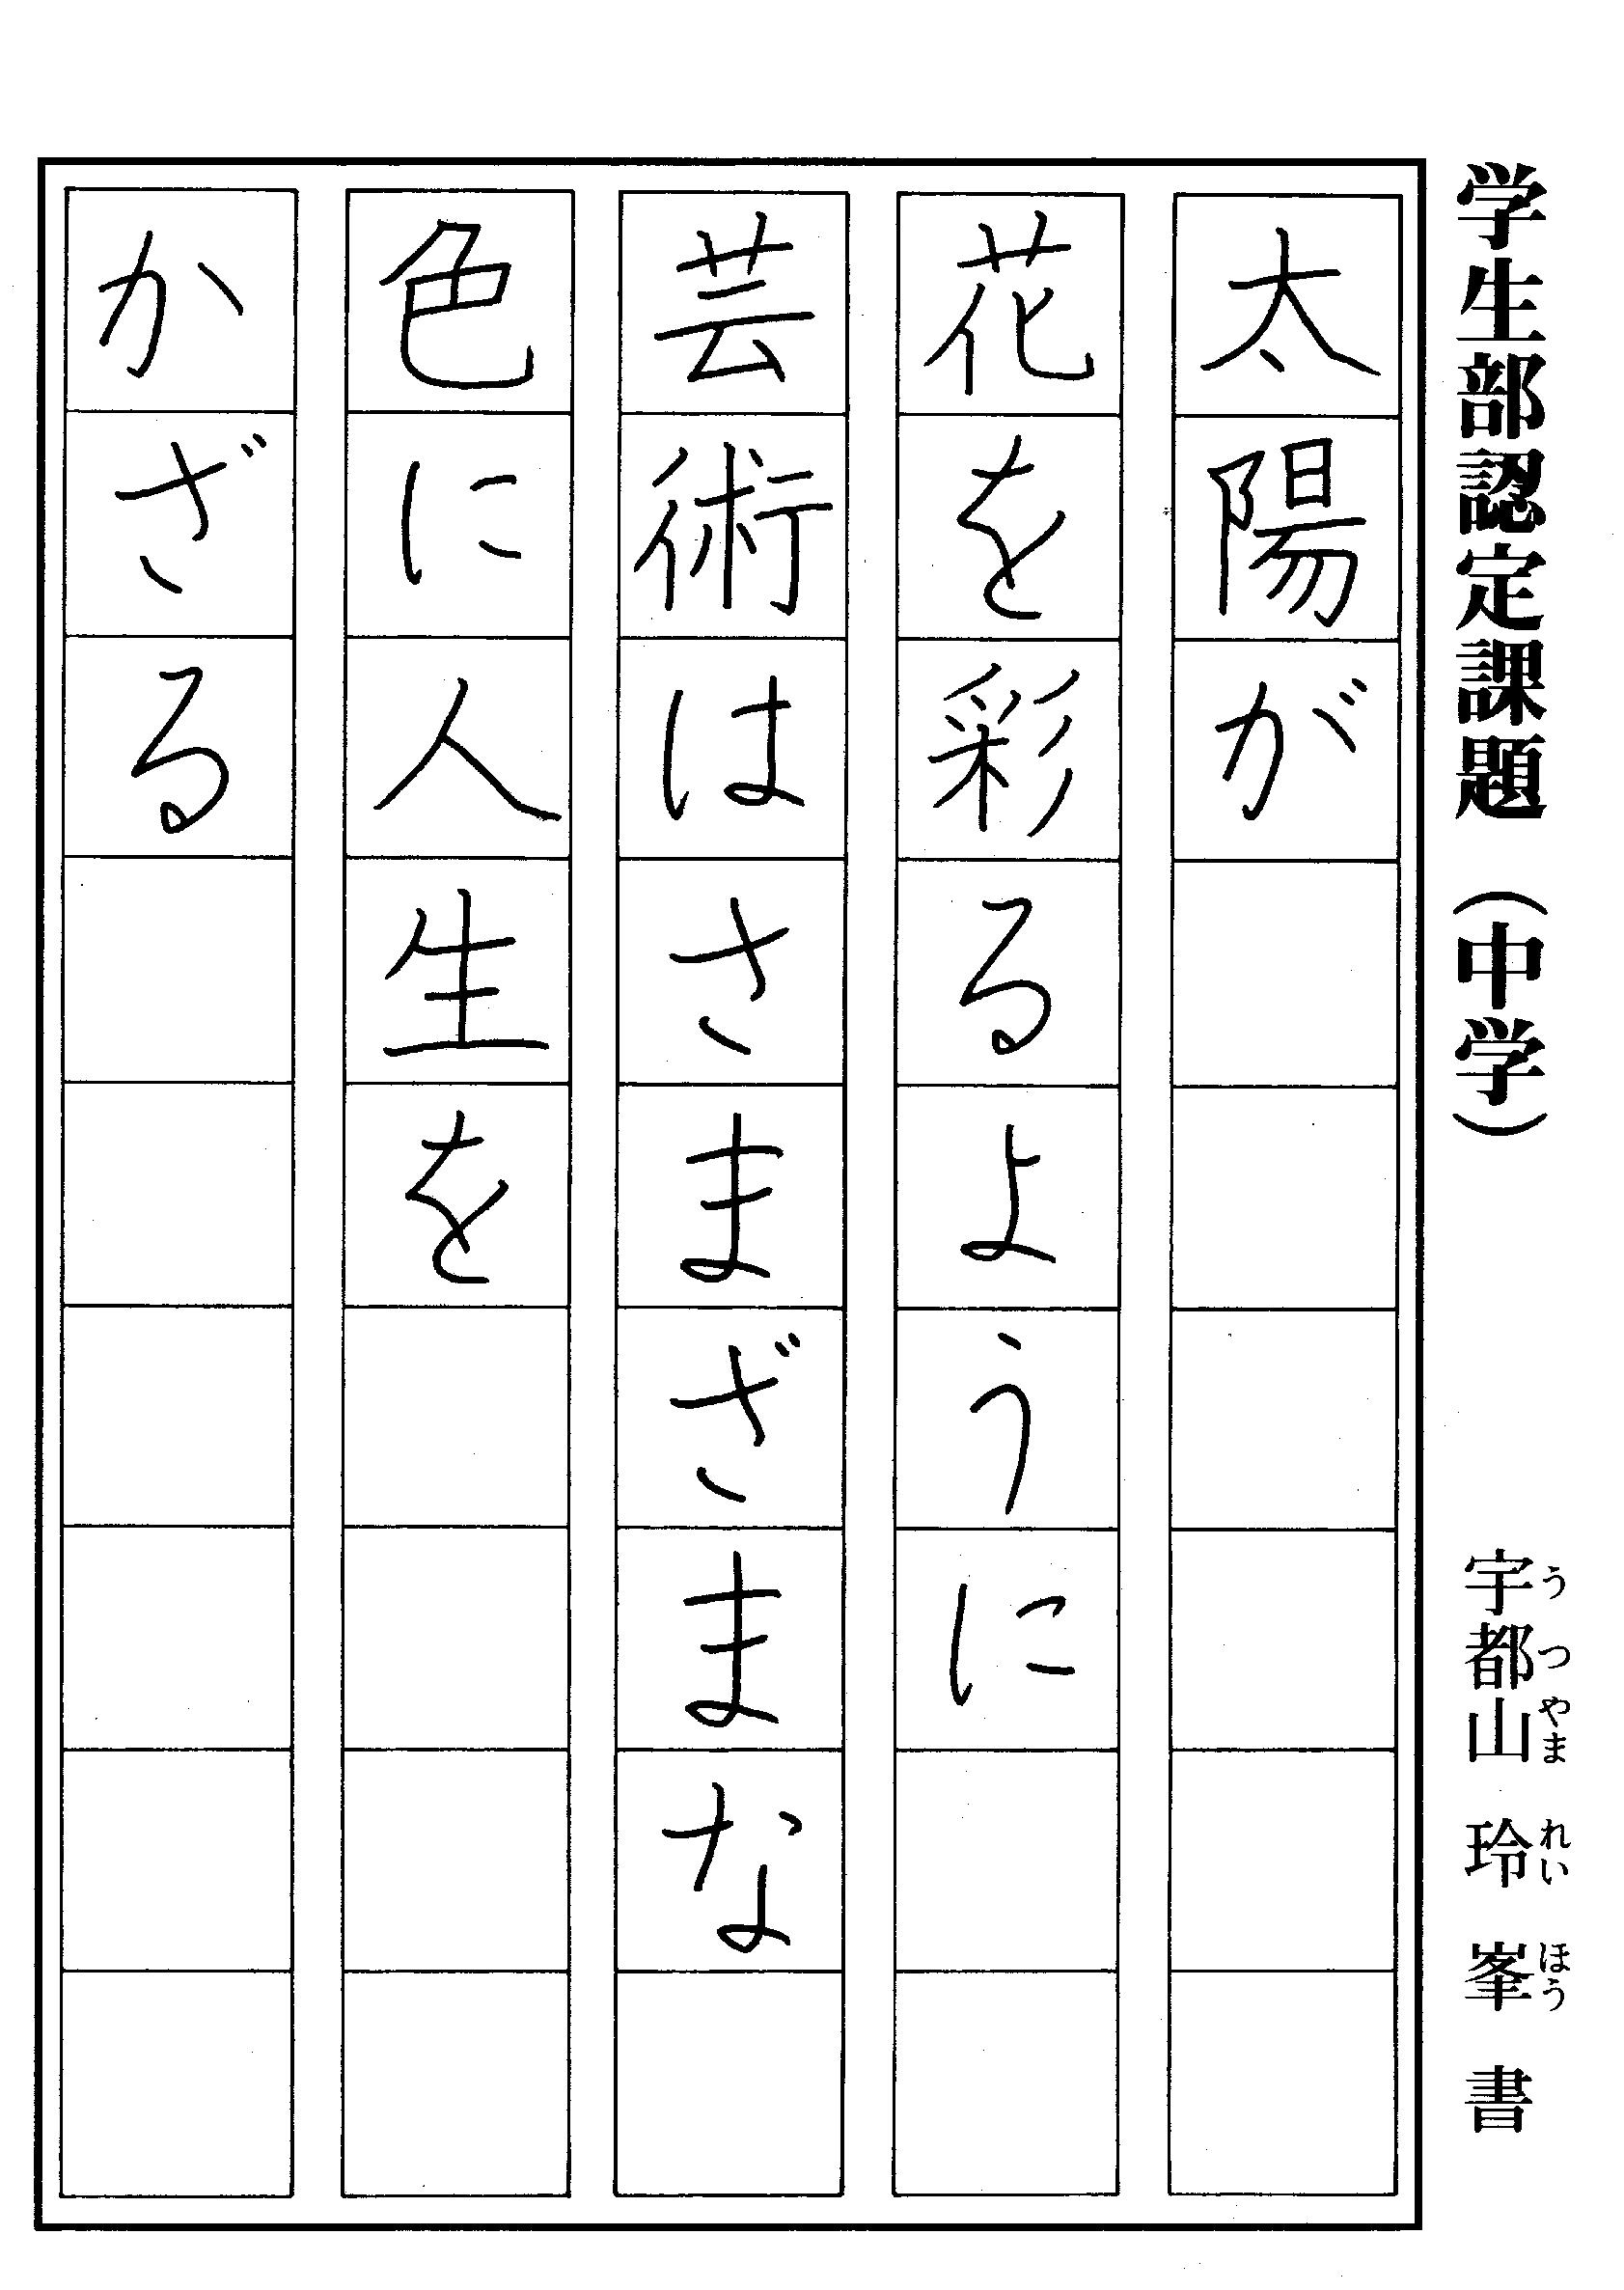 学生部認定課題（中学）
宇都山 玲 峯 書
うつやま れい ほう
太陽が
花を彩るように
芸術はさまざまな
色に人生を
かざる